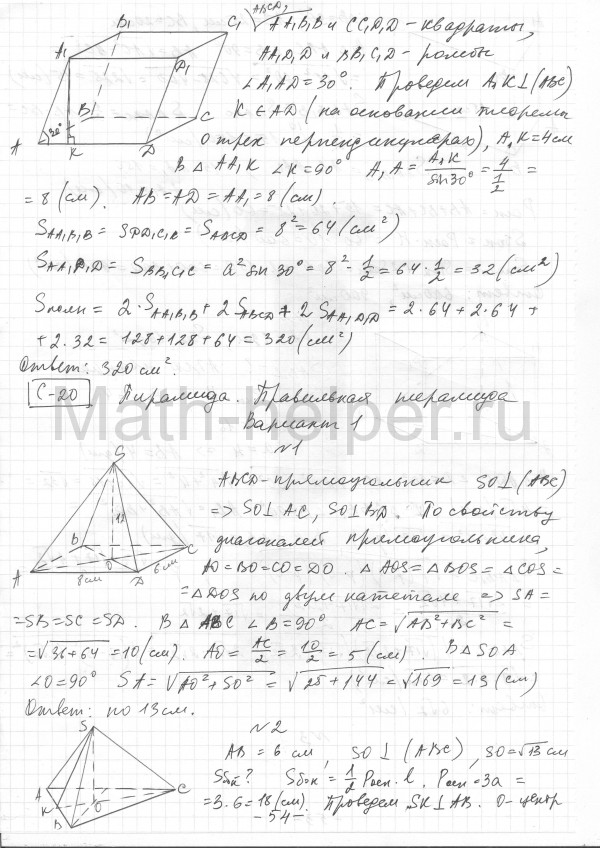 B₁ C₁ ABCD, AA₁B₁B и CC₁D₁D - квадраты,
A₁ D₁ AA₁D₁D и BB₁C₁C - ромбы
∠A₁AD = 30°. Проведем A₁K ⊥ (ABC)
B C K ∈ AD (на основании теоремы
A 30° K D о трех перпендикулярах), A₁K = 4см
В △ AA₁K ∠K = 90° A₁A = A₁K / sin 30° = 4 / (1/2) =
= 8 (см). AB = AD = AA₁ = 8 (см).
S_AA₁B₁B = S_DD₁C₁C = S_ABCD = 8² = 64 (см²)
S_AA₁D₁D = S_BB₁C₁C = a² sin 30° = 8² · 1/2 = 64 · 1/2 = 32 (см²)
Sполн = 2 · S_AA₁B₁B + 2 S_ABCD + 2 S_AA₁D₁D = 2 · 64 + 2 · 64 +
+ 2 · 32 = 128 + 128 + 64 = 320 (см²)
Ответ: 320 см².
С-20 Пирамида. Правильная пирамида
Math-helper.ru
Вариант 1
№1
S
ABCD - прямоугольник SO ⊥ (ABC)
12 => SO ⊥ AC, SO ⊥ BD. По свойству
B C диагоналей прямоугольника,
A O D 8см 6см AO = BO = CO = DO. △AOS = △BOS = △COS =
= △DOS по двум катетам => SA =
= SB = SC = SD. В △ ABC ∠B = 90° AC = √(AB² + BC²) =
= √(36 + 64) = 10 (см). AO = AC/2 = 10/2 = 5 (см). В △ SOA
∠O = 90° SA = √(AO² + SO²) = √(25 + 144) = √169 = 13 (см)
Ответ: по 13 см.
№2
S AB = 6 см, SO ⊥ (ABC), SO = √13 см
A C Sбок? Sбок = 1/2 Pосн. l. Pосн = 3a =
K O B = 3 · 6 = 18 (см). Проведем SK ⊥ AB. O - центр
- 54 -